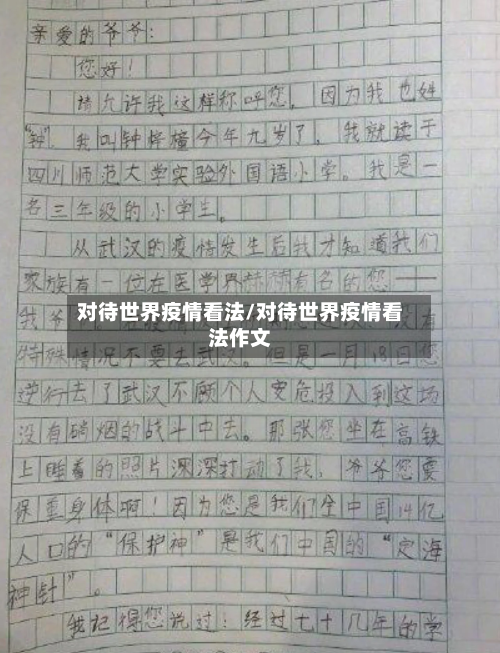 亲爱的爷爷：
您好！
请允许我这样称呼您，因为我也姓
“钟”。我叫钟梓橦今年九岁了，我就读于
四川师范大学实验外国语小学。我是一
名三年级的小学生。
从武汉的疫情发生后我才知道我们
家族有一位在医学界赫赫有名的您——
对待世界疫情看法/对待世界疫情看
法作文
我爷
特殊情况不要去武汉。但是一月18日您
逆行去了武汉不顾个人安危投入到这场
没有硝烟的战斗中去。那张您坐在高铁
上睡着的照片深深打动了我，爷爷您要
保重身体啊！因为您是我们全中国14亿
人口的“保护神”是我们中国的“定海
神针”。
我记得您说过：经过七十几年的学